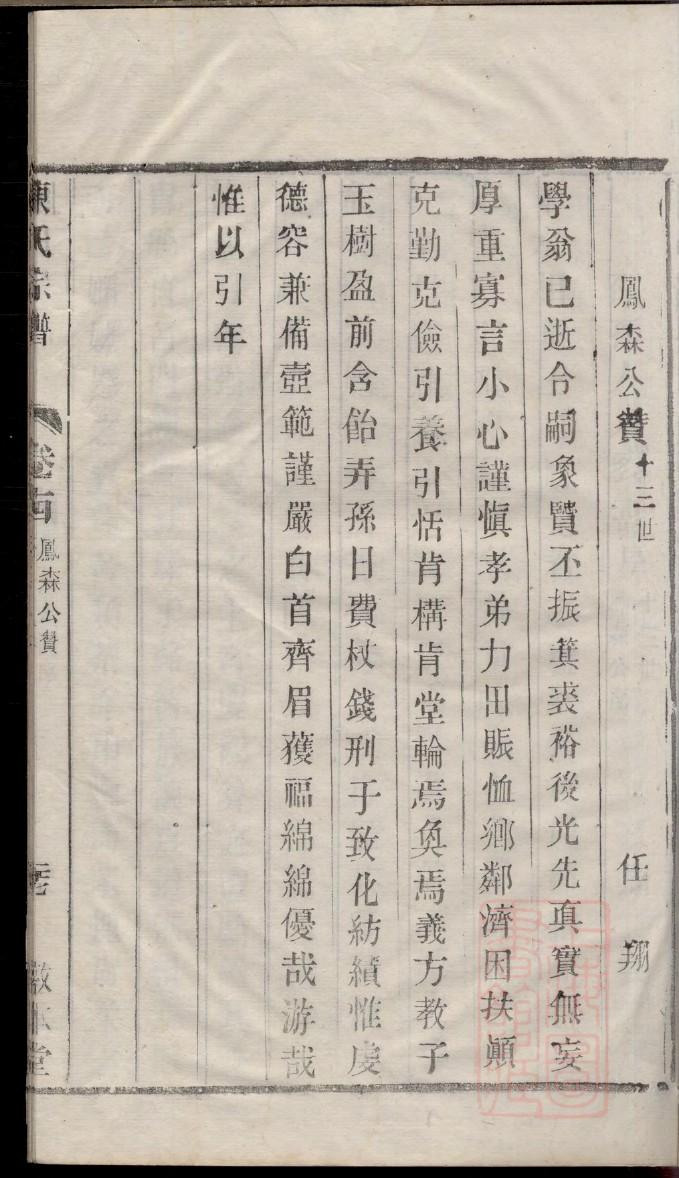 鳳森公贊十三世 任翔
學翁已逝令嗣象賢丕振箕裘裕後光先真實無妄
厚重寡言小心謹慎孝弟力田賑恤鄉鄰濟困扶顛
克勤克儉引養引恬肯構肯堂輪焉奐焉義方教子
玉樹盈前含飴弄孫日費杖錢刑于致化紡績惟虔
德容兼備壼範謹嚴白首齊眉獲福綿綿優哉游哉
惟以引年
陳氏宗譜 卷 鳳森公贊 堂